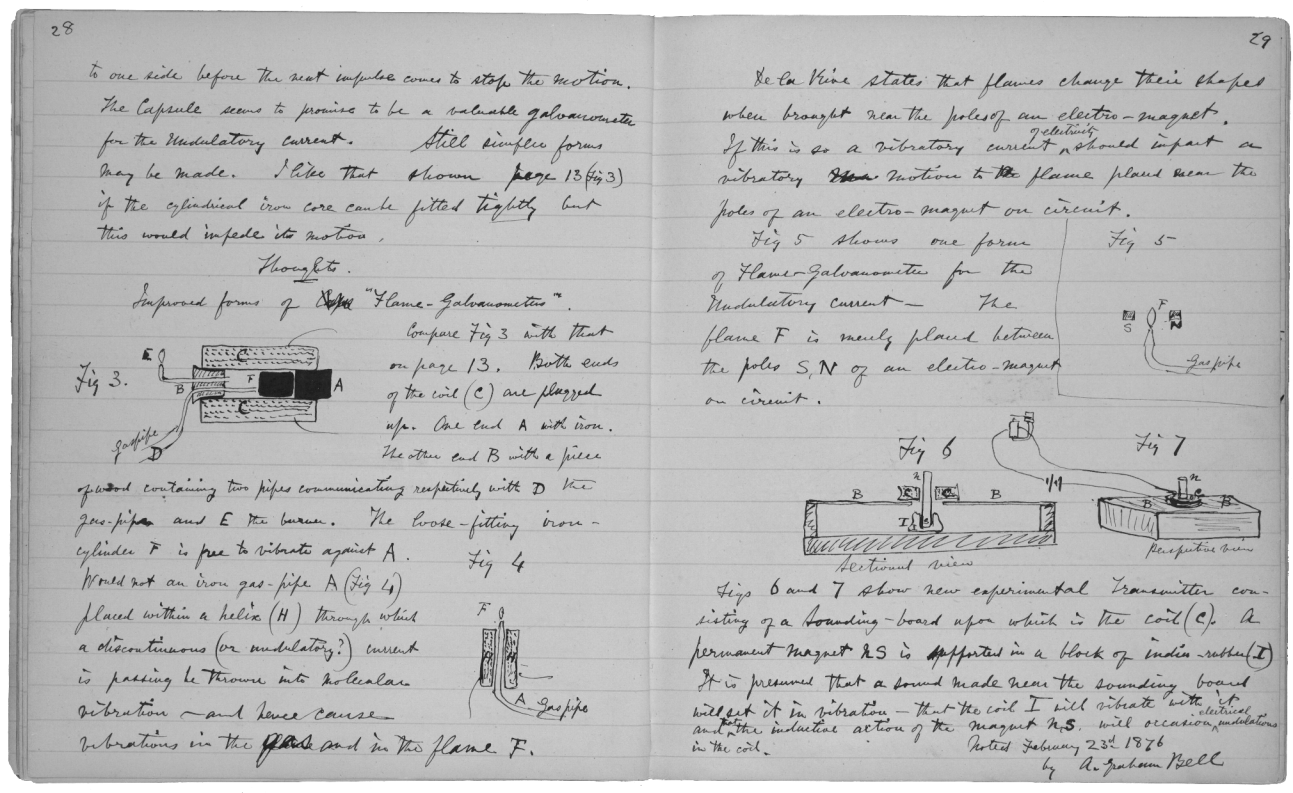 28
to one side before the next impulse comes to stop the motion.
The Capsule seems to promise to be a valuable galvanometer
for the Undulatory current. Still simpler forms
may be made. I like that shown page 13 (Fig 3)
if the cylindrical iron core can be fitted tightly but
this would impede its motion.
Thoughts.
Improved forms of "Flame-Galvanometers".
Compare Fig 3 with that
on page 13. Both ends
of the coil (C) are plugged
up. One end A with iron.
The other end B with a piece
Fig 3.
E
C
B
F
A
C
gaspipe
D
of wood containing two pipes communicating respectively with D the
gas-pipe and E the burner. The loose-fitting iron-
cylinder F is free to vibrate against A.
Would not an iron gas-pipe A (Fig 4)
placed within a helix (H) through which
a discontinuous (or undulatory?) current
is passing be thrown into molecular
vibration - and hence cause
vibrations in the gas and in the flame F.
Fig 4
F
H
H
A
gaspipe
29
De la Rive states that flames change their shapes
when brought near the poles of an electro-magnet.
If this is so a vibratory current of electricity should impart a
vibratory motion to the flame placed near the
poles of an electro-magnet on circuit.
Fig 5 shows one form
of Flame-Galvanometer for the
Undulatory current - The
flame F is merely placed between
the poles S, N of an electro-magnet
on circuit.
Fig 5
F
S
N
Gas pipe
Fig 6
n
B
C
C
B
I
S
Sectional view
Fig 7
n
B
C
B
Perspective view
Figs 6 and 7 show new experimental Transmitter con-
sisting of a Sounding-board upon which is the coil (C). A
permanent magnet NS is supported in a block of india-rubber (I)
It is presumed that a sound made near the sounding board
will set it in vibration - that the coil I will vibrate with it
and that the inductive action of the magnet N,S. will occasion electrical undulations
in the coil.
Noted February 23rd 1876
by A. Graham Bell